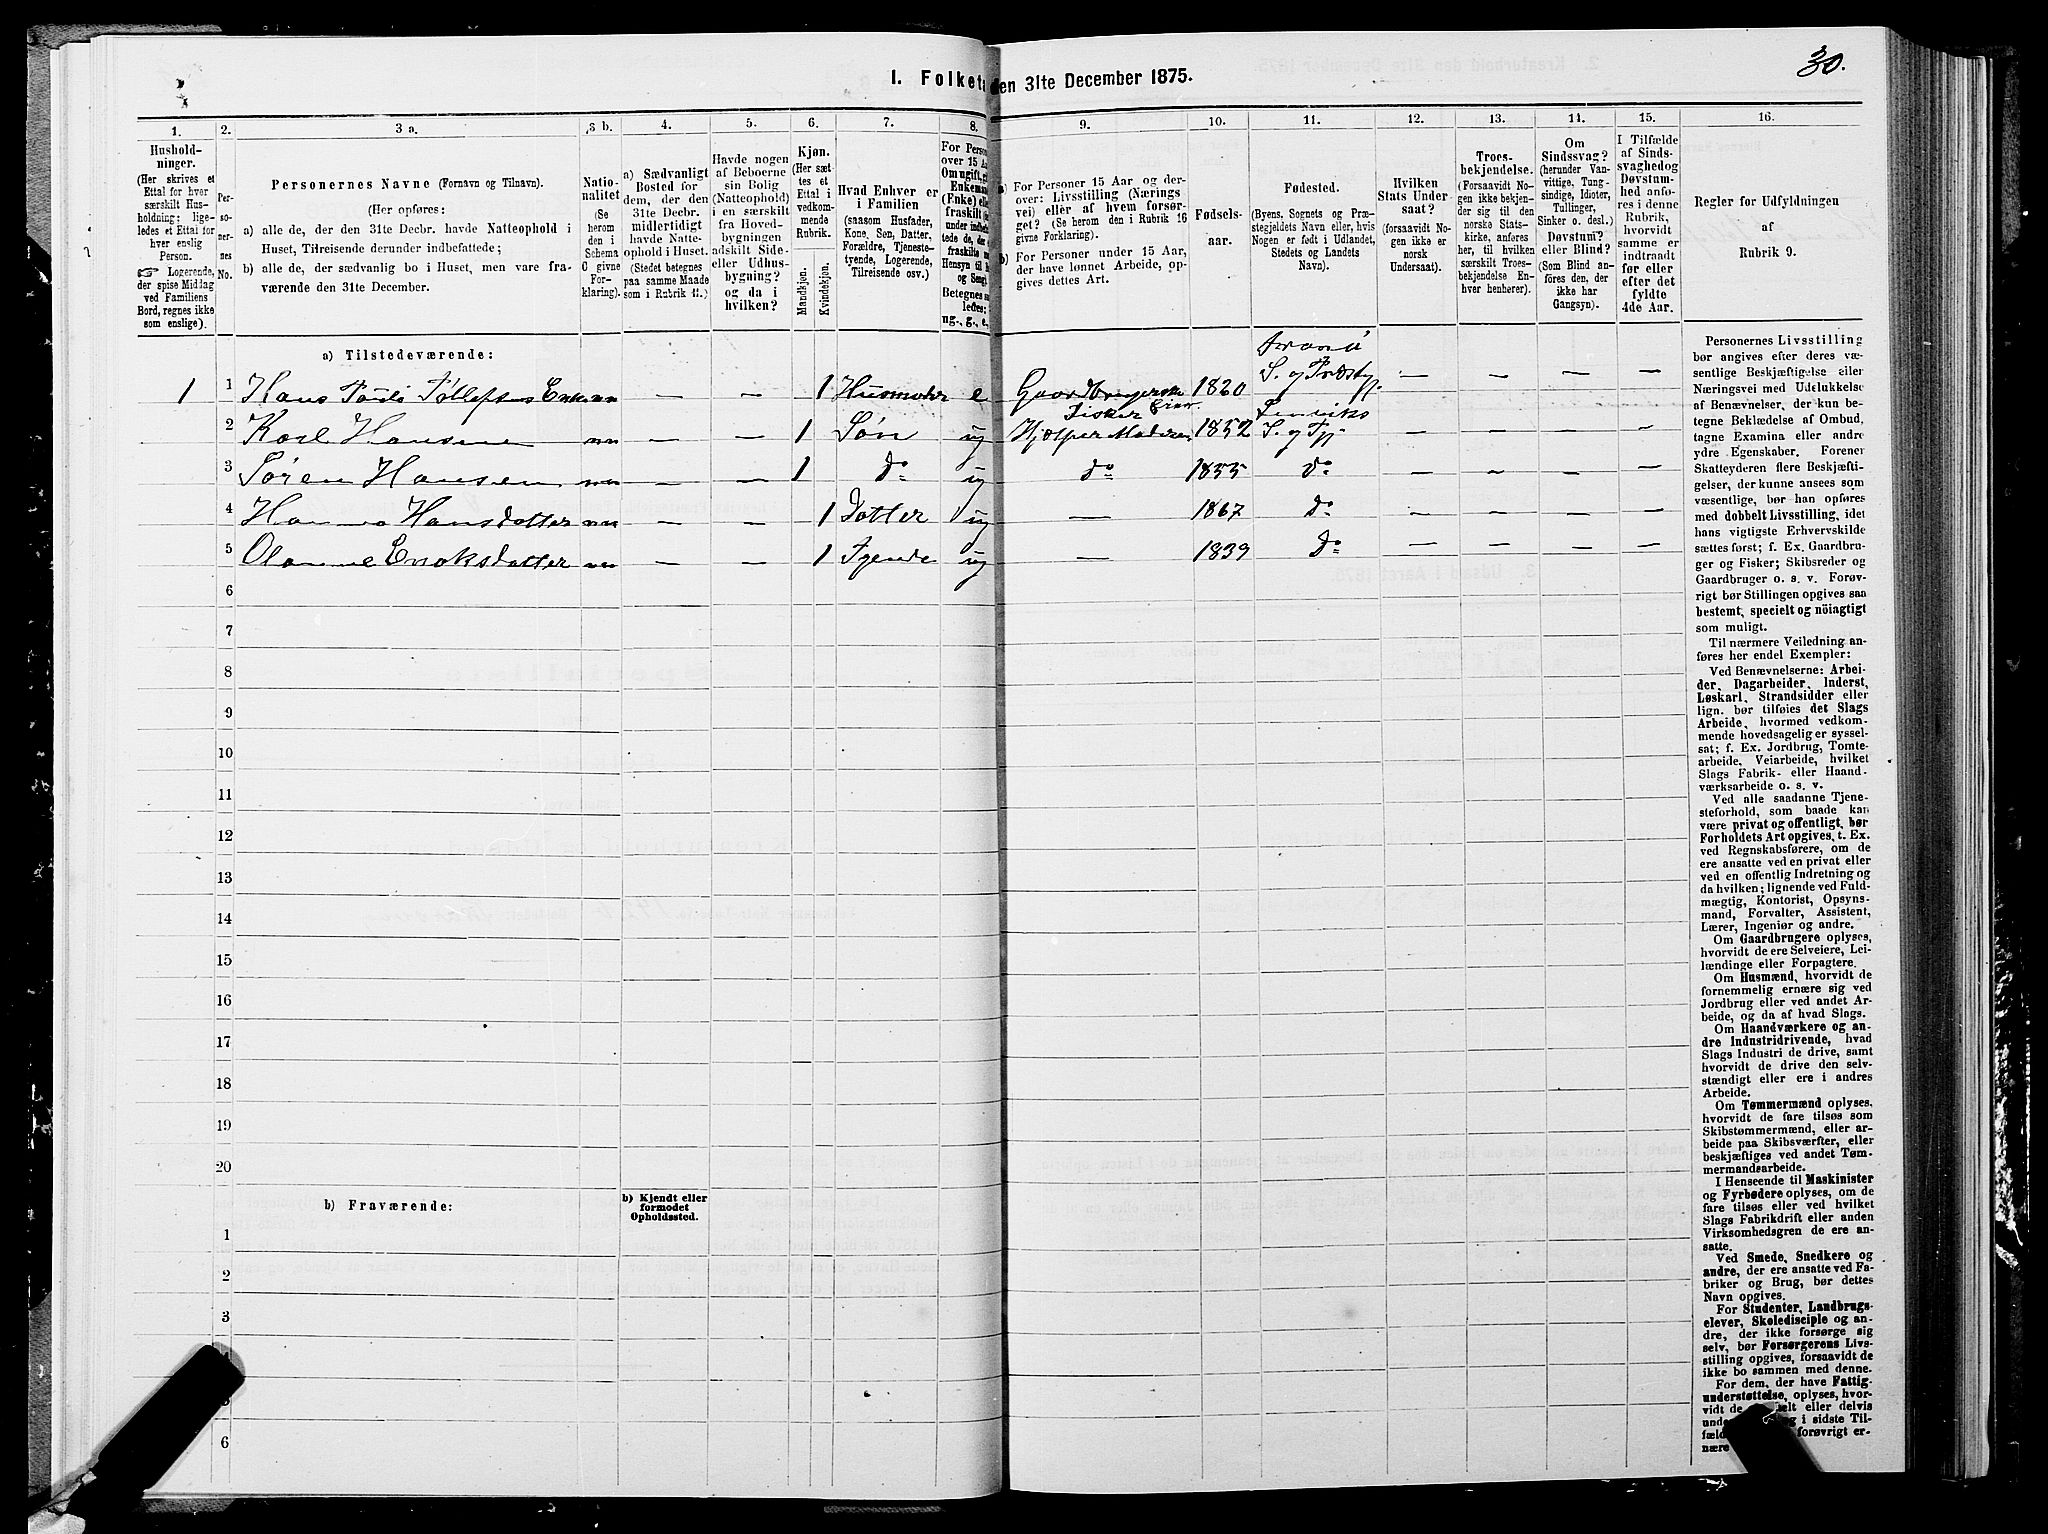 30.
I. Folketæ
den 31te December 1875.
1.
2.
3 a.
3 b.
4.
5.
6.
7.
8.
9.
10.
11.
12.
13.
14.
15.
16.
Hushold-
ninger.
(Her skrives et
Ettal for hver
særskilt Hus-
holdning; lige-
ledes et Ettal for
hver enslig
Person.
☞ Logerende,
der spise Middag
ved Familiens
Bord, regnes ikke
som enslige).
Per-
so-
ner-
nes
No.
Personernes Navne (Fornavn og Tilnavn).
(Her opføres:
a) alle de, der den 31te Decbr. havde Natteophold i
Huset, Tilreisende derunder indbefattede;
b) alle de, der sædvanlig bo i Huset, men vare fra-
værende den 31te December.
Natio-
nalitet
(Se
herom
den i
Schema
C givne
For-
klaring).
a) Sædvanligt
Bosted for
dem, der den
31te Decbr.
midlertidigt
havde Natte-
ophold i Huset.
(Stedet betegnes
paa samme Maade
som i Rubrik 11.)
Havde nogen
af Beboerne
sin Bolig
(Natteophold)
i en særskilt
fra Hoved-
bygningen
adskilt Side-
eller Udhus-
bygning?
og da i
hvilken?
Kjøn.
(Her sæt-
tes et
Ettal i
vedkom-
mende
Rubrik.
Mandkjøn.
Kvindekjøn.
Hvad Enhver er
i Familien
(saasom Husfader,
Kone, Søn, Datter,
Forældre, Tjeneste-
tyende, Logerende,
Tilreisende osv.)
For Person
over 15 Aa
Om ugift, gi
Enkeman
(Enke) elle
fraskilt
under indbe
tede de, der
fraskilte
Hensyn til
og Seng
Betegnes saa
ledes:
ug., g., e.,
a) For Personer 15 Aar og der-
over: Livsstilling (Nærings-
vei) eller af hvem forsør-
get (Se herom den i Rubrik 16
givne Forklaring).
b) For Personer under 15 Aar,
der have lønnet Arbeide, op-
gives dettes Art.
Fødsels-
aar.
Fødested.
(Byens, Sognets og Præ-
stegjeldets Navn eller, hvis
Nogen er født i Udlandet,
Stedets og Landets
Navn).
Hvilken
Stats Under-
saat?
(forsaavidt No-
gen ikke er
norsk
Undersaat).
Troes-
bekjendelse.
(Forsaavidt No-
gen ikke bekjen-
der sig til den
norske Stats-
kirke, anføres
her, til hvilken
særskilt Troes-
bekjendelse En-
hver henhører).
Om
Sindssvag?
(herunder Van-
vittige, Tung-
sindige, Idioter,
Tullinger,
Sinker o. desl.)
Døvstum?
eller Blind?
(Som Blind an-
føres den, der
ikke har
Gangsyn).
I Tilfælde
af Sinds-
svaghed og
Døvstum-
hed anfø-
res i denne
Rubrik,
hvorvidt
samme er
indtraadt
før eller
efter det
fyldte
4de Aar.
Regler for Udfyldningen
af
Rubrik 9.
a) Tilstedeværende:
1 1 1 Husmoder e 1820 S. og Præstgj. — — — —
2 Karl Hansen — — 1 Søn ug Hjælper Moderen 1852 S. og Pgj. — — — —
3 Søren Hansen — — 1 do ug do 1855 do — — — —
4 Hanna Hansdatter — — 1 Datter ug — 1867 do — — — —
5 Enoksdatter — — 1 ug — 1839 do — — — —
6
7
8
9
10
11
12
13
14
15
16
17
18
19
20
b) Fraværende:
b) Kjendt eller
formodet
Opholdssted.
1
2
3
4
5
6
Personernes Livsstilling
bør angives efter deres væ-
sentlige Beskjæftigelse eller
Næringsvei med Udelukkelse
af Benævnelser, der kun be-
tegne Beklædelse af Ombud,
tagne Examina eller andre
ydre Egenskaber. Forener
Skatteyderen flere Beskjæfti-
gelser, der kunne ansees som
væsentlige, bør han opføres
med dobbelt Livsstilling, idet
hans vigtigste Erhvervskilde
sættes først; f. Ex. Gaardbru-
ger og Fisker; Skibsreder og
Gaardbruger o. s. v. Forøv-
rigt bør Stillingen opgives saa
bestemt, specielt og nöiagtigt
som muligt.
Til nærmere Veiledning an-
føres her endel Exempler:
Ved Benævnelserne: Arbei-
der, Dagarbeider, Inderst,
Løskarl, Strandsidder eller
lign. bør tilføies det Slags
Arbeide, hvormed vedkom-
mende hovedsagelig er syssel-
sat; f. Ex. Jordbrug, Tomte-
arbeide, Veiarbeide, hvilket
Slags Fabrik- eller Haand-
værksarbeide o. s. v.
Ved alle saadanne Tjene-
steforhold, som baade kan
være privat og offentligt, bør
Forholdets Art opgives, t. Ex.
ved Regnskabsførere, om de
ere ansatte ved en privat eller
ved en offentlig Indretning og
da hvilken; lignende ved Fuld-
mægtig, Kontorist, Opsyns-
mand, Forvalter, Assistent,
Lærer, Ingeniør og andre.
Om Gaardbrugere oplyses,
hvorvidt de ere Selveiere, Lei-
lændinge eller Forpagtere.
Om Husmænd, hvorvidt de
fornemmelig ernære sig ved
Jordbrug eller ved andet Ar-
beide, og da af hvad Slags.
Om Haandværkere og an-
dre Industridrivende, hvad
Slags Industri de drive, samt
hvorvidt de drive den selv-
stændigt eller ere i andres
Arbeide.
Om Tømmermænd oplyses,
hvorvidt de fare tilsøs som
Skibstømmermænd, eller ar-
beide paa Skibsværfter, eller
beskjæftiges ved andet Tøm-
mermandsarbeide.
I Henseende til Maskinister
og Fyrbødere oplyses, om de
fare tilsøs eller ved hvilket
Slags Fabrikdrift eller anden
Virksomhedsgren de ere an-
satte.
Ved Smede, Snedkere og
andre, der ere ansatte ved Fa-
briker og Brug, bør dettes
Navn opgives.
For Studenter, Landbrugs-
elever, Skoledisciple og an-
dre, der ikke forsørge sig
selv, bør Forsørgerens Livs-
stilling opgives, forsaavidt de
ikke bo sammen med denne.
For dem, der have Fattig-
understøttelse, oplyses, hvor-
vidt de elt eller delvis
unde g i sidste Til-
fæld forøvrigt er-
nære